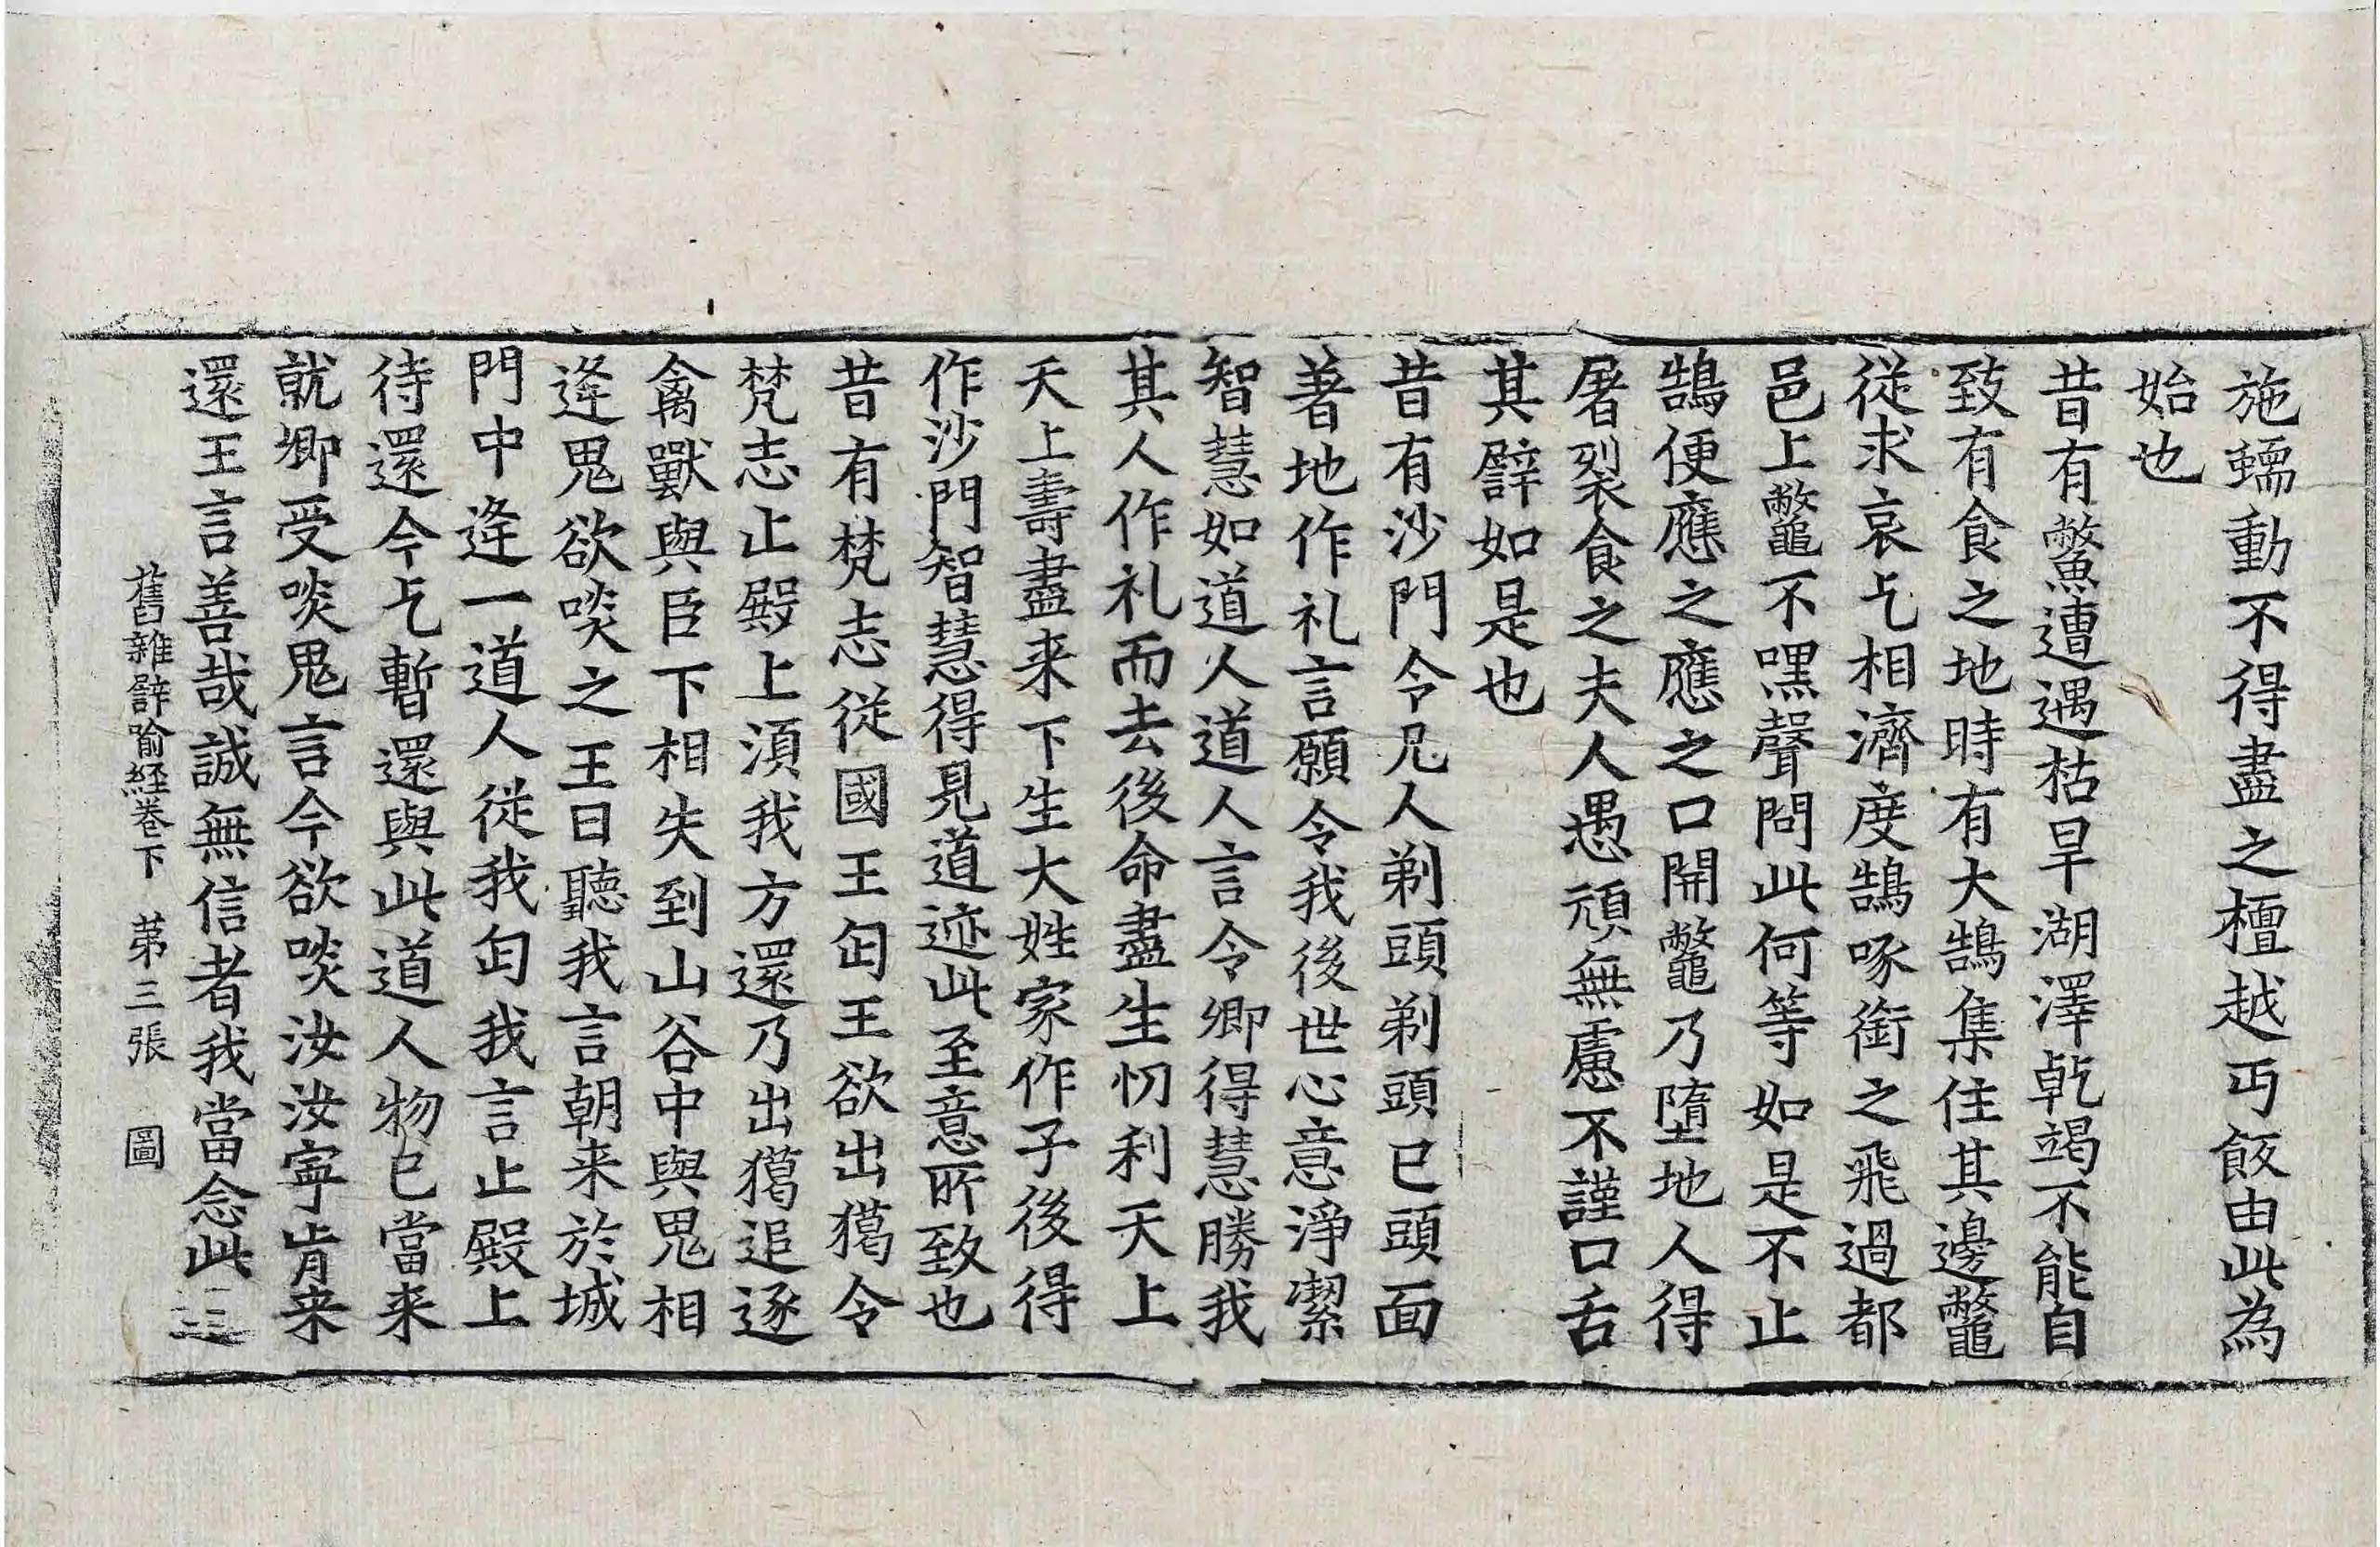 施蠕動不得盡之檀越丏飯由此為
始也
昔有鱉遭遇枯旱湖澤乹竭不能自
致有食之地時有大鵠集住其邊鼈
從求哀乞相濟度鵠啄銜之飛過都
邑上鼈不嘿聲問此何等如是不止
鵠便應之應之口開鼈乃墮地人得
屠裂食之夫人愚頑無慮不謹口舌
其譬如是也
昔有沙門令凡人剃頭剃頭已頭面
著地作礼言願令我後世心意淨潔
智慧如道人道人言令卿得慧勝我
其人作礼而去後命盡生忉利天上
天上壽盡来下生大姓家作子後得
作沙門智慧得見道迹此至意所致也
昔有梵志從國王匃王欲出獦令
梵志止殿上湏我方還乃出獦追逐
禽獸與臣下相失到山谷中與鬼相
逢鬼欲啖之王曰聽我言朝来於城
門中逢一道人從我匃我言止殿上
待還今乞暫還與此道人物已當来
就卿受啖鬼言今欲啖汝汝寧肯来
還王言善哉誠無信者我當念此
舊雜譬喻經卷下　苐三張　圖